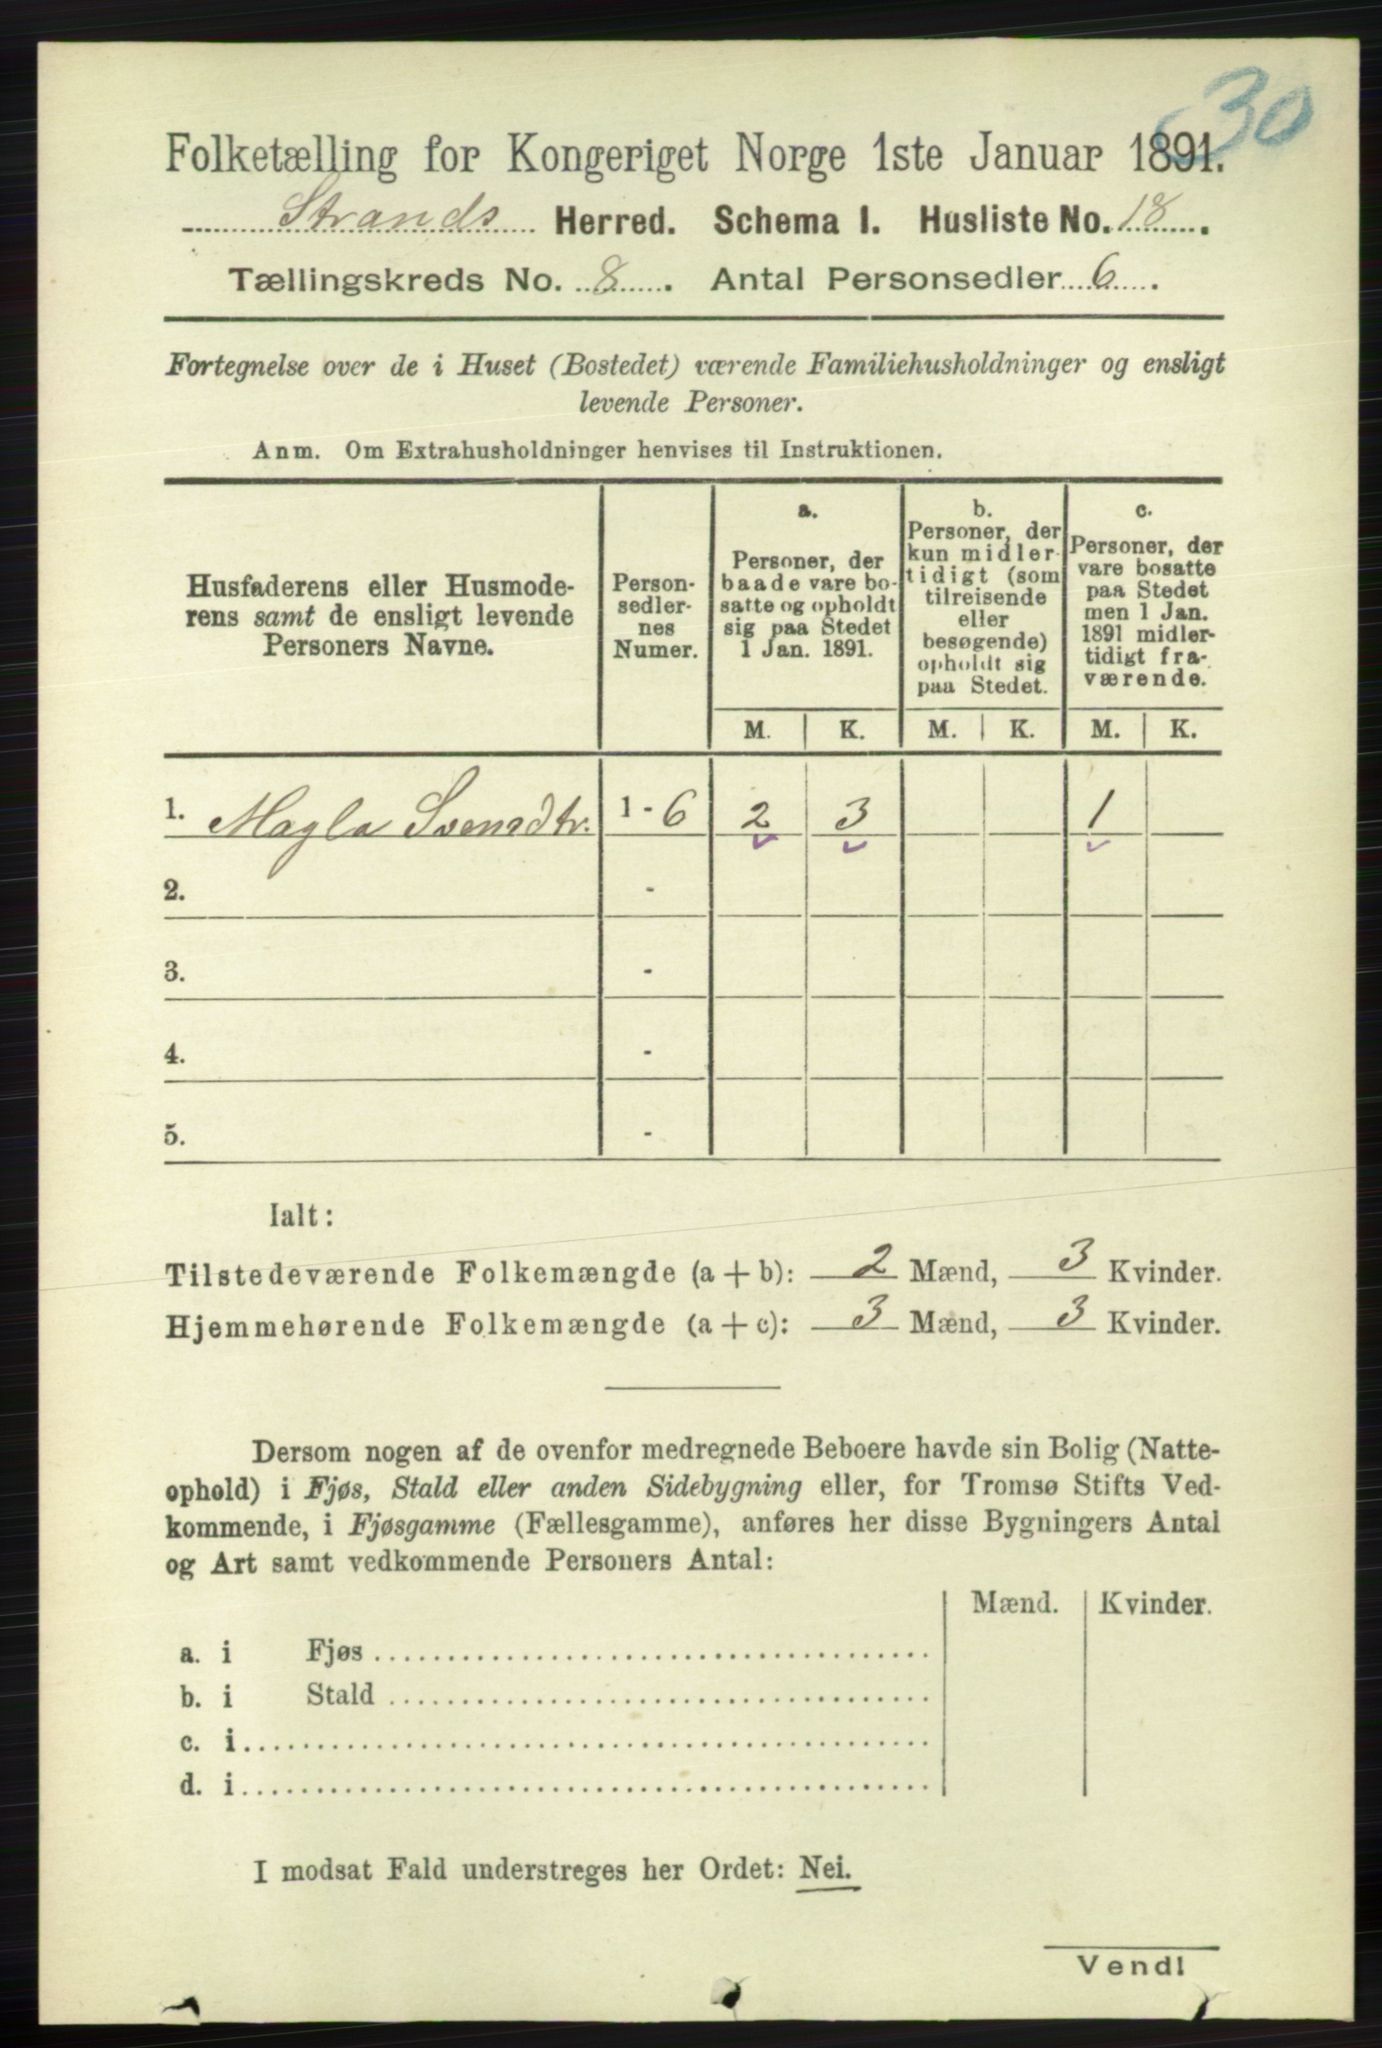 30
Folketælling for Kongeriget Norge 1ste Januar 1891.
Strands Herred. Schema I. Husliste No. 18.
Tællingskreds No. 8. Antal Personsedler 6.
Fortegnelse over de i Huset (Bostedet) værende Familiehusholdninger og ensligt
levende Personer.
Anm. Om Extrahusholdninger henvises til Instruktionen.
Husfaderens eller Husmode-
rens samt de ensligt levende
Personers Navne.
Person-
sedler-
nes
Numer.
a.
Personer, der
baade vare bo-
satte og opholdt
sig paa Stedet
1 Jan. 1891.
b.
Personer, der
kun midler-
tidigt (som
tilreisende
eller
besøgende)
opholdt sig
paa Stedet.
c.
Personer, der
vare bosatte
paa Stedet
men 1 Jan.
1891 midler-
tidigt fra-
værende.
M. K. M. K. M. K.
1. Magla Svensdtr. 1 - 6 2 3 1
2. -
3. -
4. -
5. -
Ialt:
Tilstedeværende Folkemængde (a + b): 2 Mænd, 3 Kvinder.
Hjemmehørende Folkemængde (a + c): 3 Mænd, 3 Kvinder.
Dersom nogen af de ovenfor medregnede Beboere havde sin Bolig (Natte-
ophold) i Fjøs, Stald eller anden Sidebygning eller, for Tromsø Stifts Ved-
kommende, i Fjøsgamme (Fællesgamme), anføres her disse Bygningers Antal
og Art samt vedkommende Personers Antal:
Mænd. Kvinder.
a. i Fjøs
b. i Stald
c. i
d. i
I modsat Fald understreges her Ordet: Nei.
Vend!